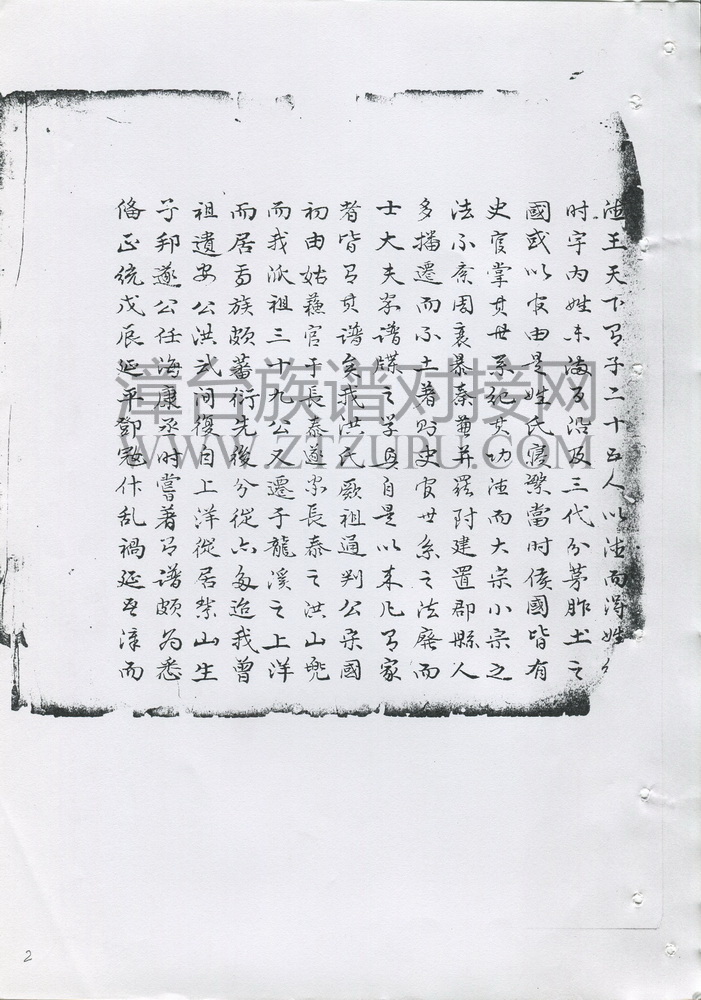 德王天下有子二十五人以德而得姓
時宇內姓未滿百沿及三代分茅胙土之
國或以官由是姓氏寢繁當時侯國皆有
史官掌其世系紀其功德而大宗小宗之
法不紊周衰暴秦兼并罷附建置郡縣人
多播遷而不土著則史官世系之法廢而
士大夫家譜牒之學興自是以來凡有家
者皆有其譜矣我洪氏厥祖通判公宋國
初由姑蘇官于長泰遂家長泰之洪山兜
而我派祖三十九公又遷于龍溪之上洋
而居焉族頗蕃衍先後分從六處迨我曾
祖遺安公洪武間復自上洋從居崇山生
子邦遂公任海康丞時嘗著有譜頗為悉
俻正統戊辰延平鄧寇作乱禍延吾漳而
漳台族谱对接网
WWW.ZTZUPU.COM
2